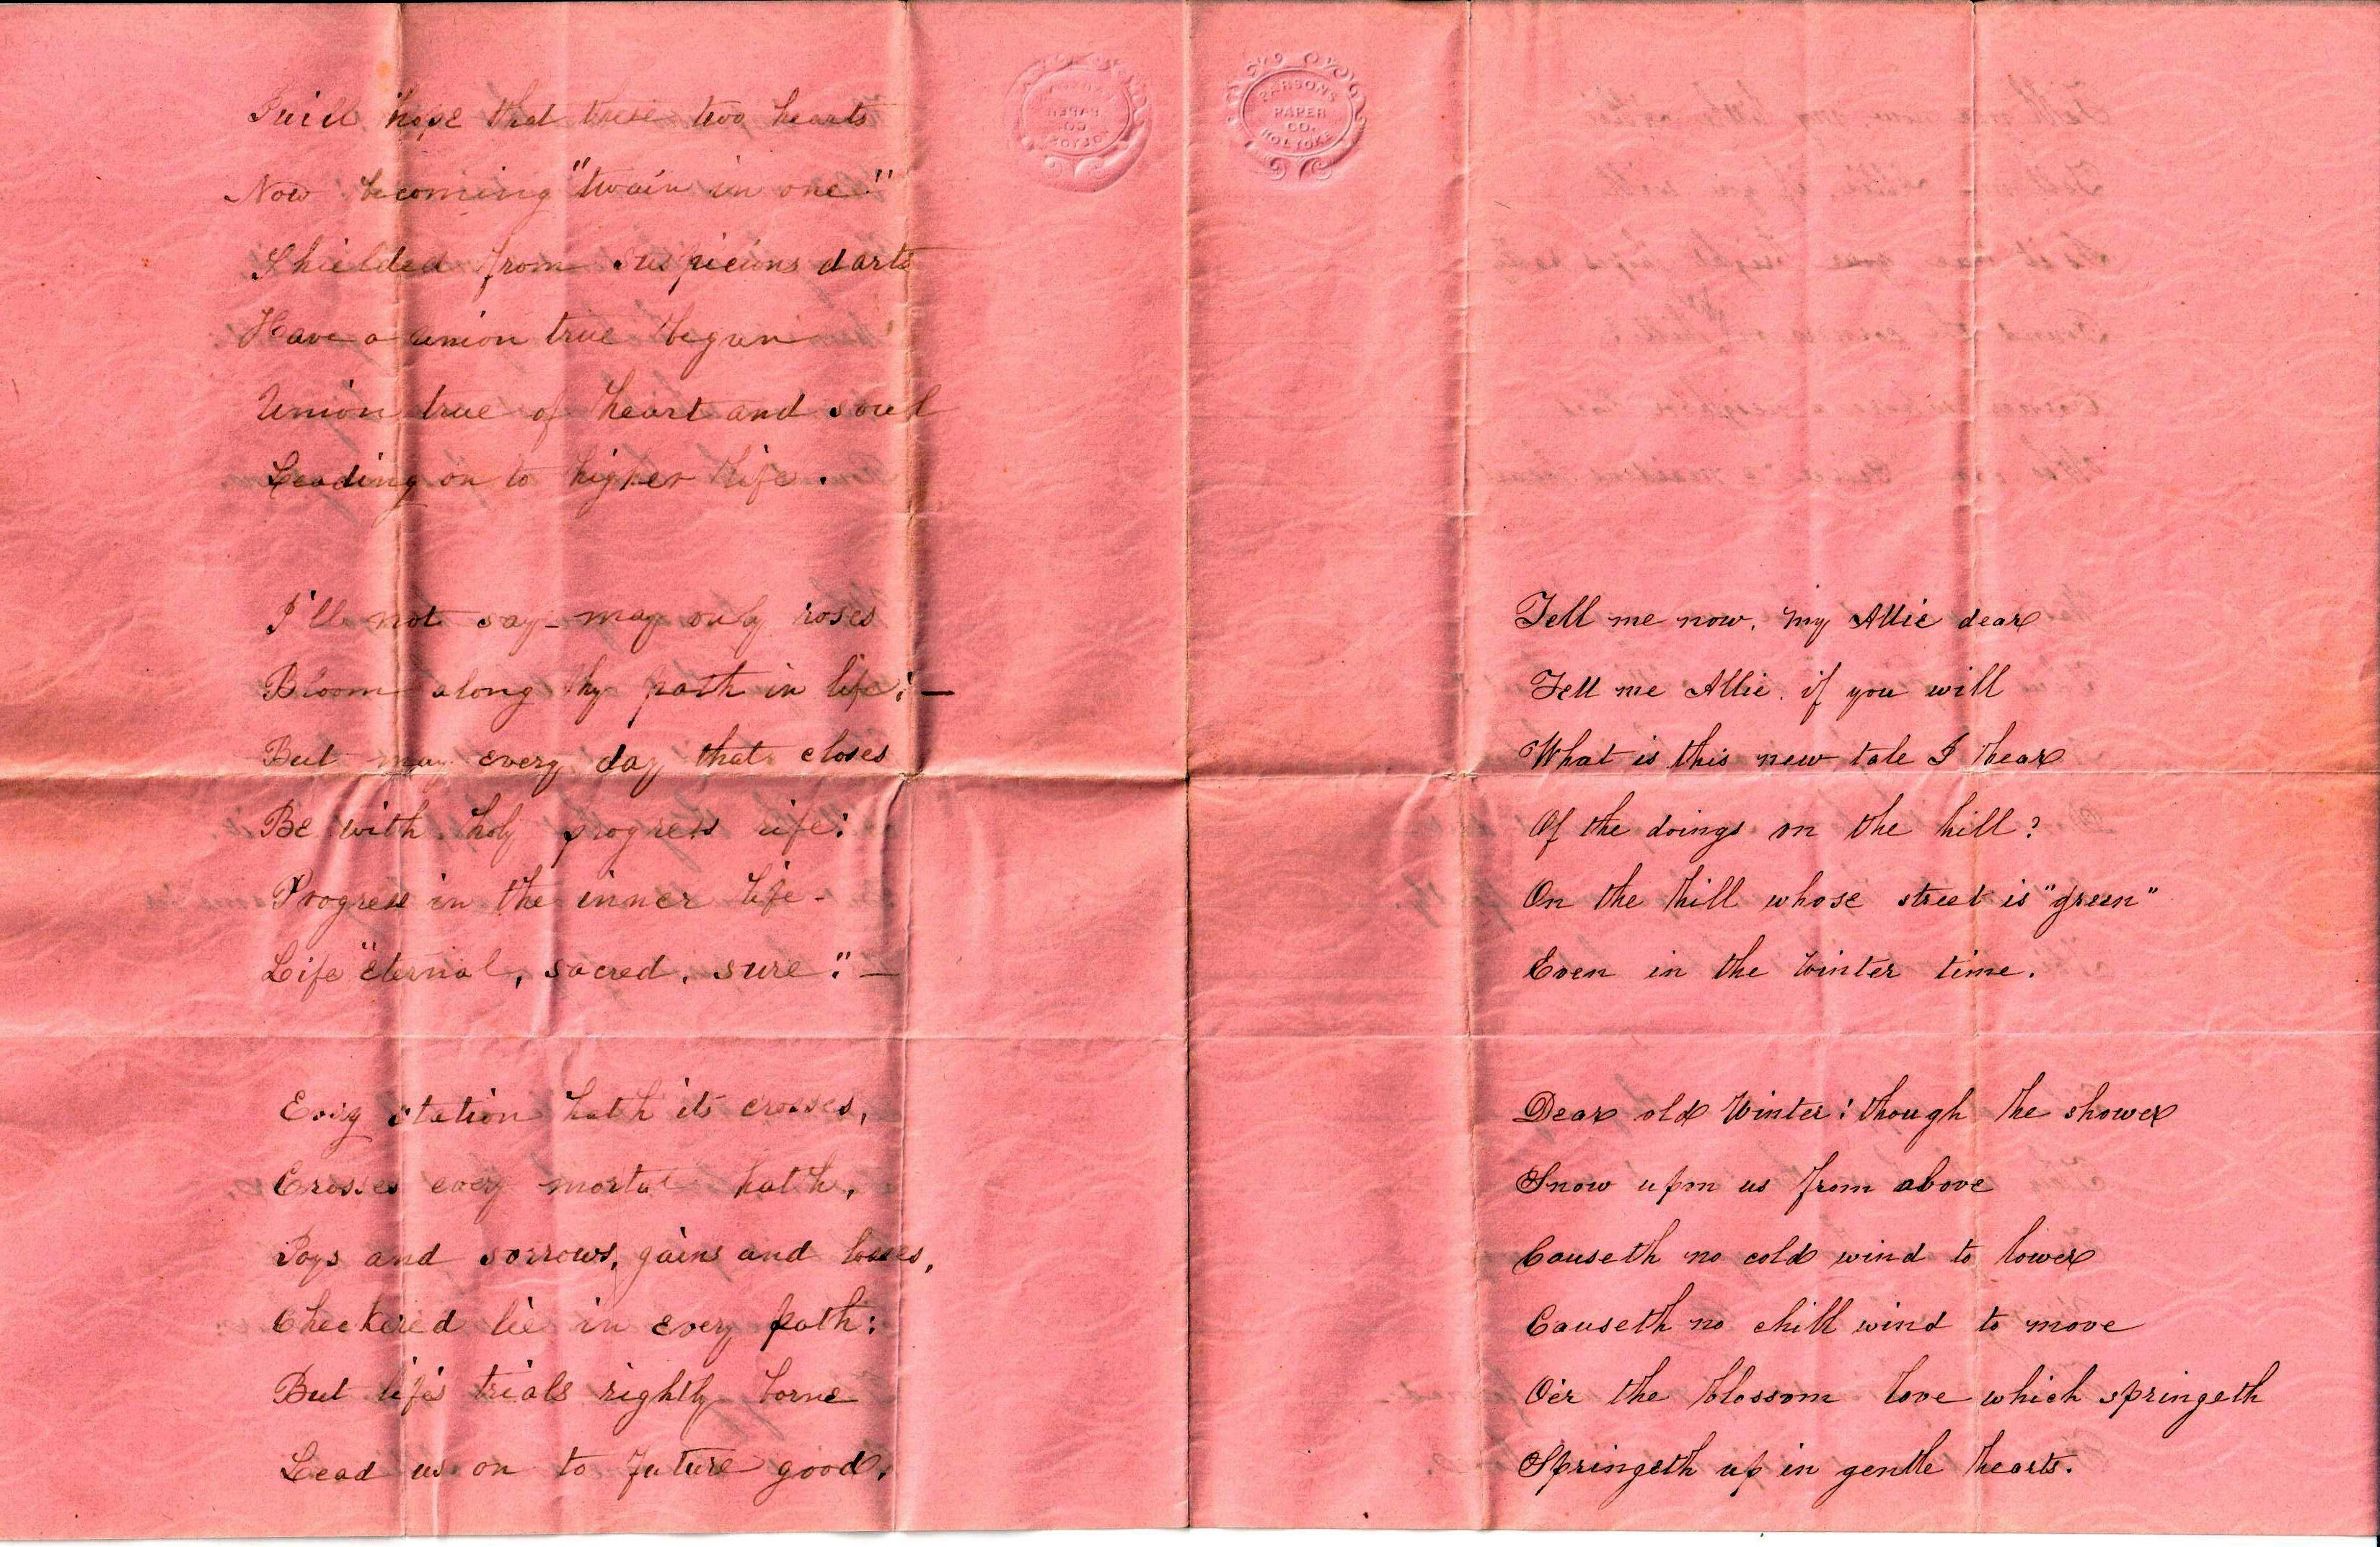 I will hope that these two hearts
Now becoming "twain in one"
Shielded from suspicions darts
Have a union true begun
Union true of heart and soul
Leading on to higher life.
I'll not say - may only roses
Bloom along thy path in life; —
But may every day that closes
Be with holy progress rife;
Progress in the inner life -
Life "eternal, sacred, sure". —
Every station hath its crosses,
Crosses every mortal hath,
Joys and sorrows, gains and losses,
Checkered lie in every path;
But life's trials rightly borne
Lead us on to future good.
PARSONS
PAPER
CO.
HOLYOKE
Tell me now, my Allie dear
Tell me Allie, if you will
What is this new tale I hear
Of the doings on the hill?
On the hill whose street is "green"
Even in the Winter time.
Dear old Winter! though he shower
Snow upon us from above
Causeth no cold wind to lower
Causeth no chill wind to move
O'er the blossom love which springeth
Springeth up in gentle hearts.